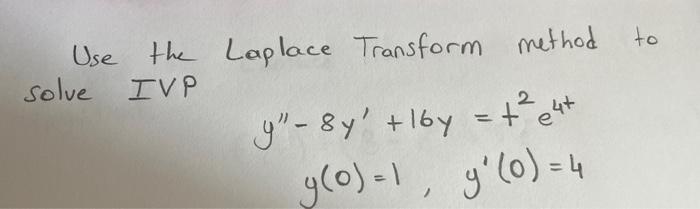 Use the Laplace Transform method to
solve IVP
y" - 8y' + 16y = t² e⁴ᵗ
y(0) = 1, y'(0) = 4